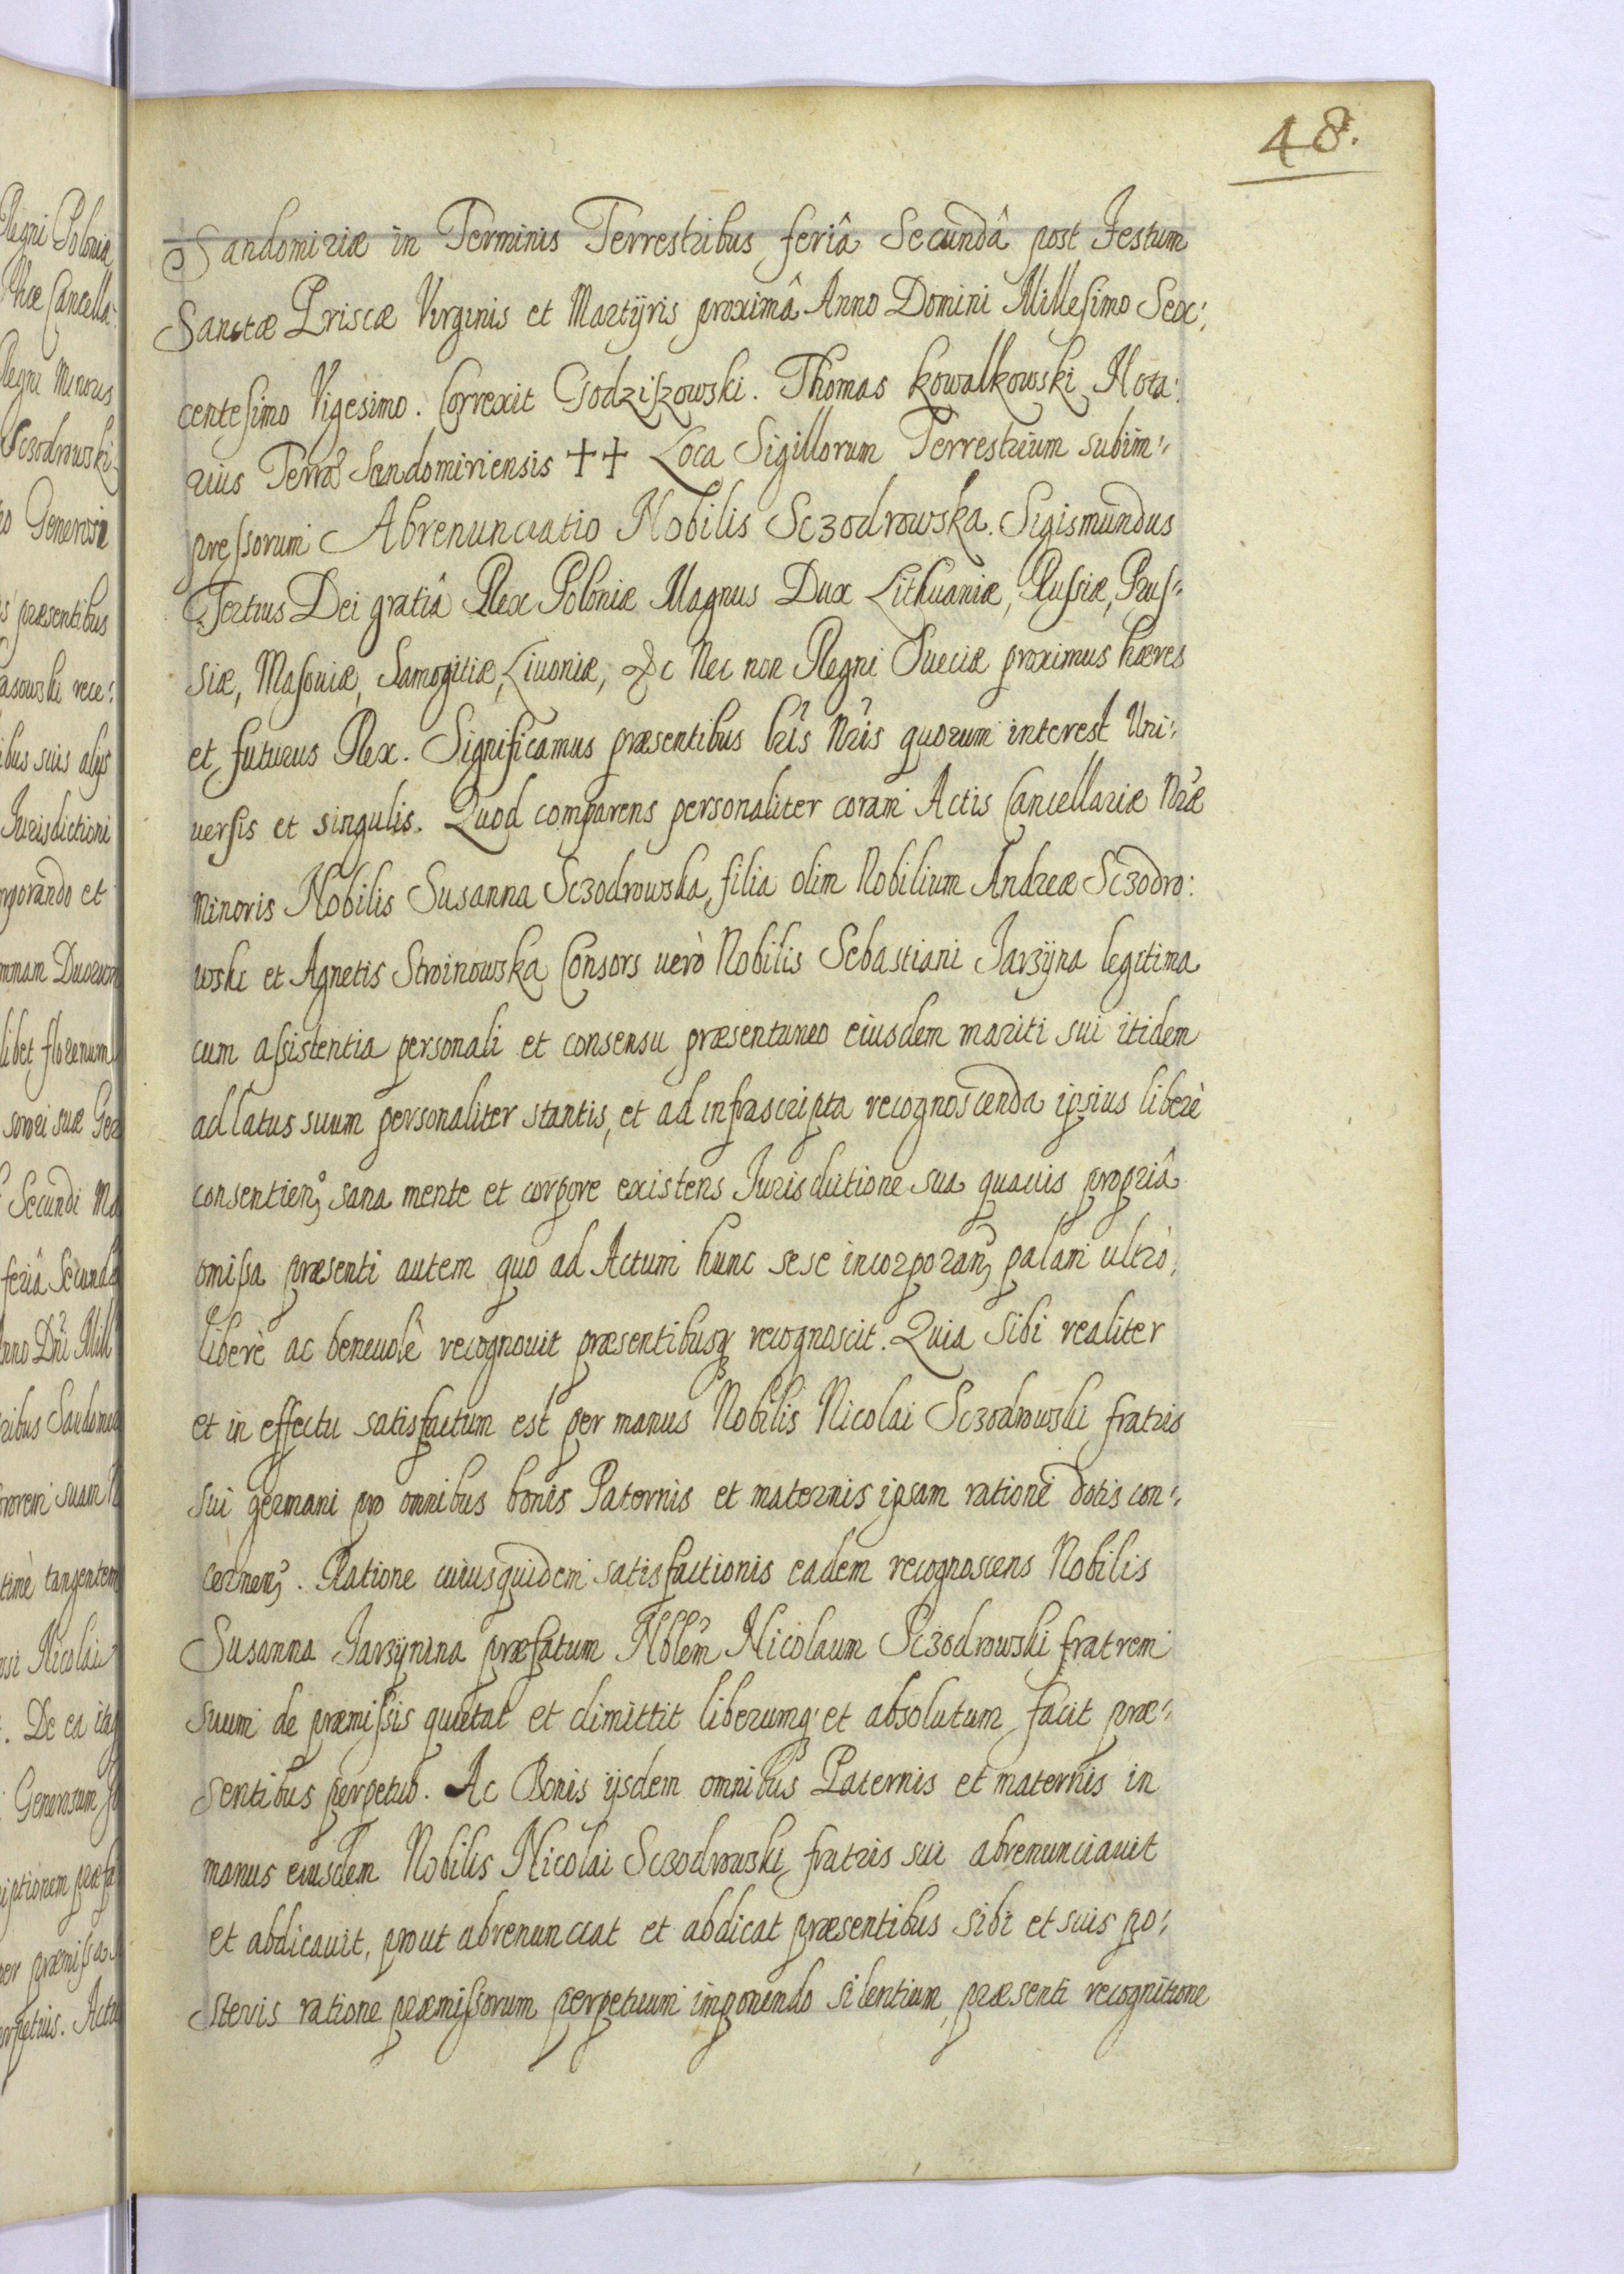 48.
Sandomiriæ in Terminis Terrestribus feriâ Secundâ post Festum
Sanctæ Priscæ Virginis et Martÿris proximâ Anno Domini Millesimo Sex:
centesimo Vigesimo. Correxit Godziszowski. Thomas Kowalkowski Nota:
rius Terræ Sandomiriensis ++ Loca Sigillorum Terrestrium subim:
pressorum Abrenunciatio Nobilis Sczodrowska. Sigismundus
Tertius Dei gratiâ Rex Poloniæ Magnus Dux Lithuaniæ, Russiæ, Prus:
siæ, Masouiæ, Samogitiæ, Liuoniæ, &c Nec non Regni Sueciæ proximus hæres
et futurus Rex. Significamus præsentibus lris Nris quorum interest Uni:
uersis et singulis. Quod comparens personaliter coram Actis Cancellariæ Nræ
Minoris Nobilis Susanna Sczodrowska, filia olim Nobilium Andreæ Sczodro:
wski et Agnetis Stroinowska Consors uerò Nobilis Sebastiani Jarzÿna legitima
cum assistentia personali et consensu præsentaneo eiusdem mariti sui itidem
ad latus suum personaliter stantis, et ad infrascripta recognoscenda ipsius liberè
consentien, sana mente et corpore existens Jurisdictione sua quauis propriâ
omissa præsenti autem quo ad Actum hunc sese incorporan, palam ultrò,
liberè ac beneuolè recognouit præsentibusq recognoscit. Quia sibi realiter
et in effectu satisfactum est per manus Nobilis Nicolai Sczodrowski fratris
sui germani pro omnibus bonis Paternis et maternis ipsam ratione dotis con:
cernen. Ratione cuiusquidem satisfactionis eadem recognoscens Nobilis
Susanna Jarzÿnina præfatum Nblem Nicolaum Sczodrowski fratrem
suum de præmissis quietat et dimittit liberumq et absolutum facit præ:
sentibus perpetuò. Ac Bonis ijsdem omnibus Paternis et maternis in
manus eiusdem Nobilis Nicolai Sczodrowski fratris sui abrenunciauit
et abdicauit, prout abrenunciat et abdicat præsentibus sibi et suis po:
steris ratione præmissorum perpetuum imponendo silentium, præsenti recognitione